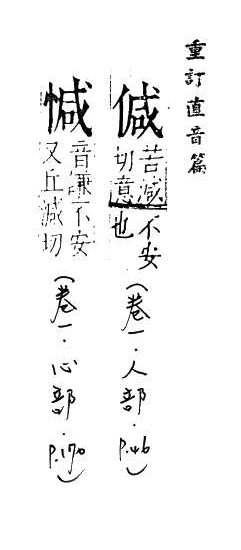 重訂直音篇
傶 苦減切意不安也(卷一.人部.P.46)
慽 音𠐟不安又丘減切(卷一.心部.P.170)